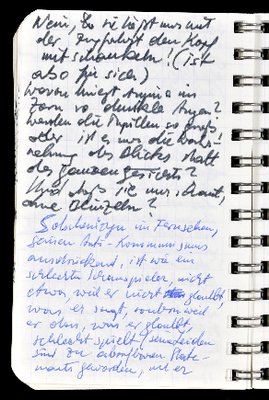 Nein, So
der den Kopf
mit schaukeln! (ist
also für sich)
Warum kriegt Annina im
Zorn so dunkle Augen?
Werden die Pupillen so groß,
oder ist es nur die Wahr-
nehmung des Blicks statt
des ganzen Gesichts?
Und daß sie nur schaut,
ohne Blinzeln?
Solschenizyn im Fernsehen,
seinen Anti-Kommunismus
ausdrückend, ist wie ein
schlechter Schauspieler, nicht
etwa, weil er nicht glaubt,
was er sagt, sondern weil
er das, was er glaubt,
schlecht spielt;
sind zu abrufbaren State-
ments geworden, mit er